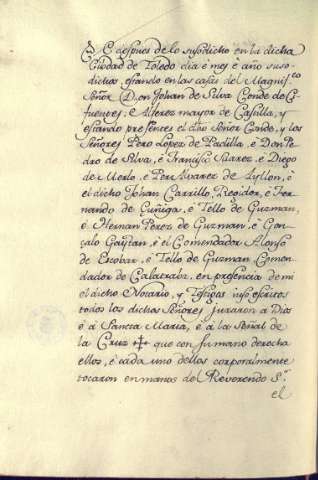 E despues de lo susodicho en la dicha
Ciudad de Toledo dia é mes é año suso-
dichos, estando en las casas del Magnifco
Señor Don Johan de Silva Conde de Ci-
fuentes, é Alferez mayor de Castilla, y
estando presentes el dho Señor Conde, y los
Señores Pero Lopez de Padilla, é Don Pe-
dro de Silva, é Francisco Suarez, é Diego
de Merlo, é Per Alvarez de Ayllon, é
el dicho Johan Carrillo, Regidor, é Fer-
nando de Çuñiga, é Tello de Guzman,
é Hernan Perez de Guzman, é Gon-
çalo Gaytan, é el Comendador Alonso
de Escobar, é Tello de Guzman Comen-
dador de Calatraba, en presencia de mi
el dicho Notario, y Testigos inso escritos
todos los dichos Señores juraron a Dios
é á Sancta Maria, é á la Señal de
la Cruz ✝ que con su mano derecha
ellos, é cada uno dellos corporalmente
tocaron en manos del Reverendo Sr.
el